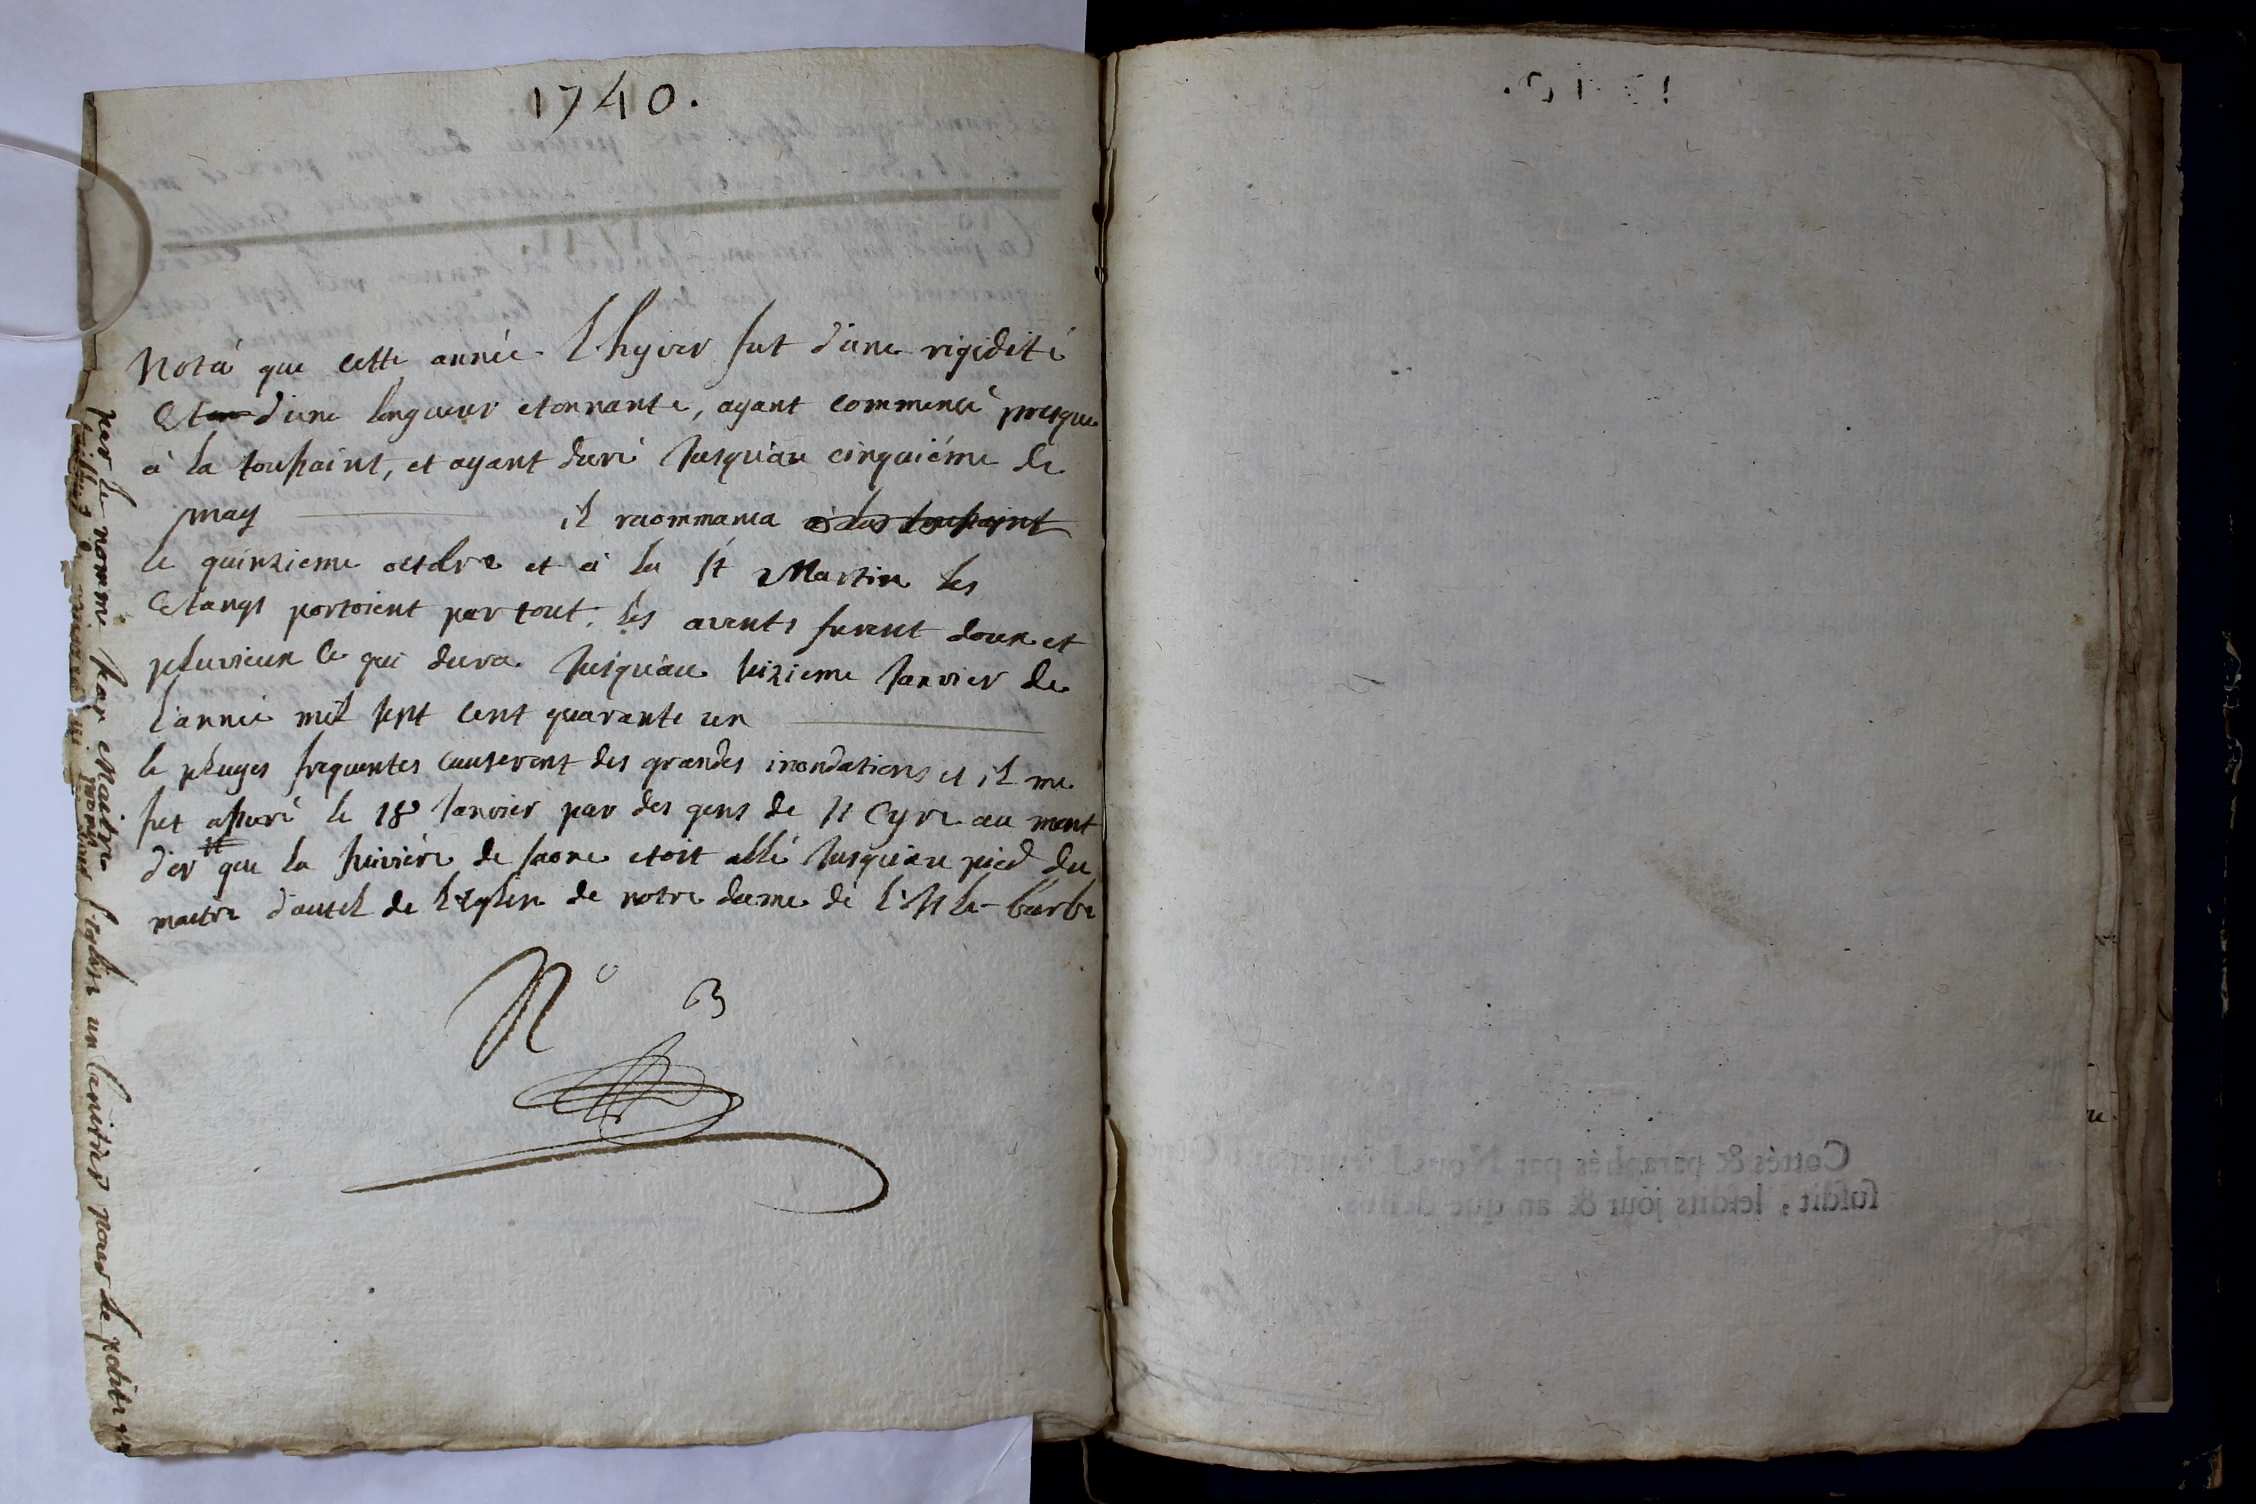 1740.
Nota que cette année l'hyver fut d'une rigidité
Et d'une longueur etonnante, ayant commencé presque
à la toussaint, et ayant duré Jusqu'au cinquiéme de
may il recommança à la toussaint
le quinzieme octbre et à la st Martin les
Etangs portoient par tout. les avents furent doux et
pluvieux ce qui dura Jusqu'au seizieme Janvier de
l'année mil sept cent quarante un
le pluyes frequentes causerent des grandes inondations et il me
fut assuré le 18 Janvier par des gens de st Cyre au mont
d'or que la rivière de saone etoit allé Jusqu'au pied du
maitre d'autel de l'Eglise de notre dame de l'isle-barbe
N° 3
par le nommé par Maitre
l'eglise un
pour le
Cottés & paraphés par Nous
susdit, lesdits jour & an que dessus.